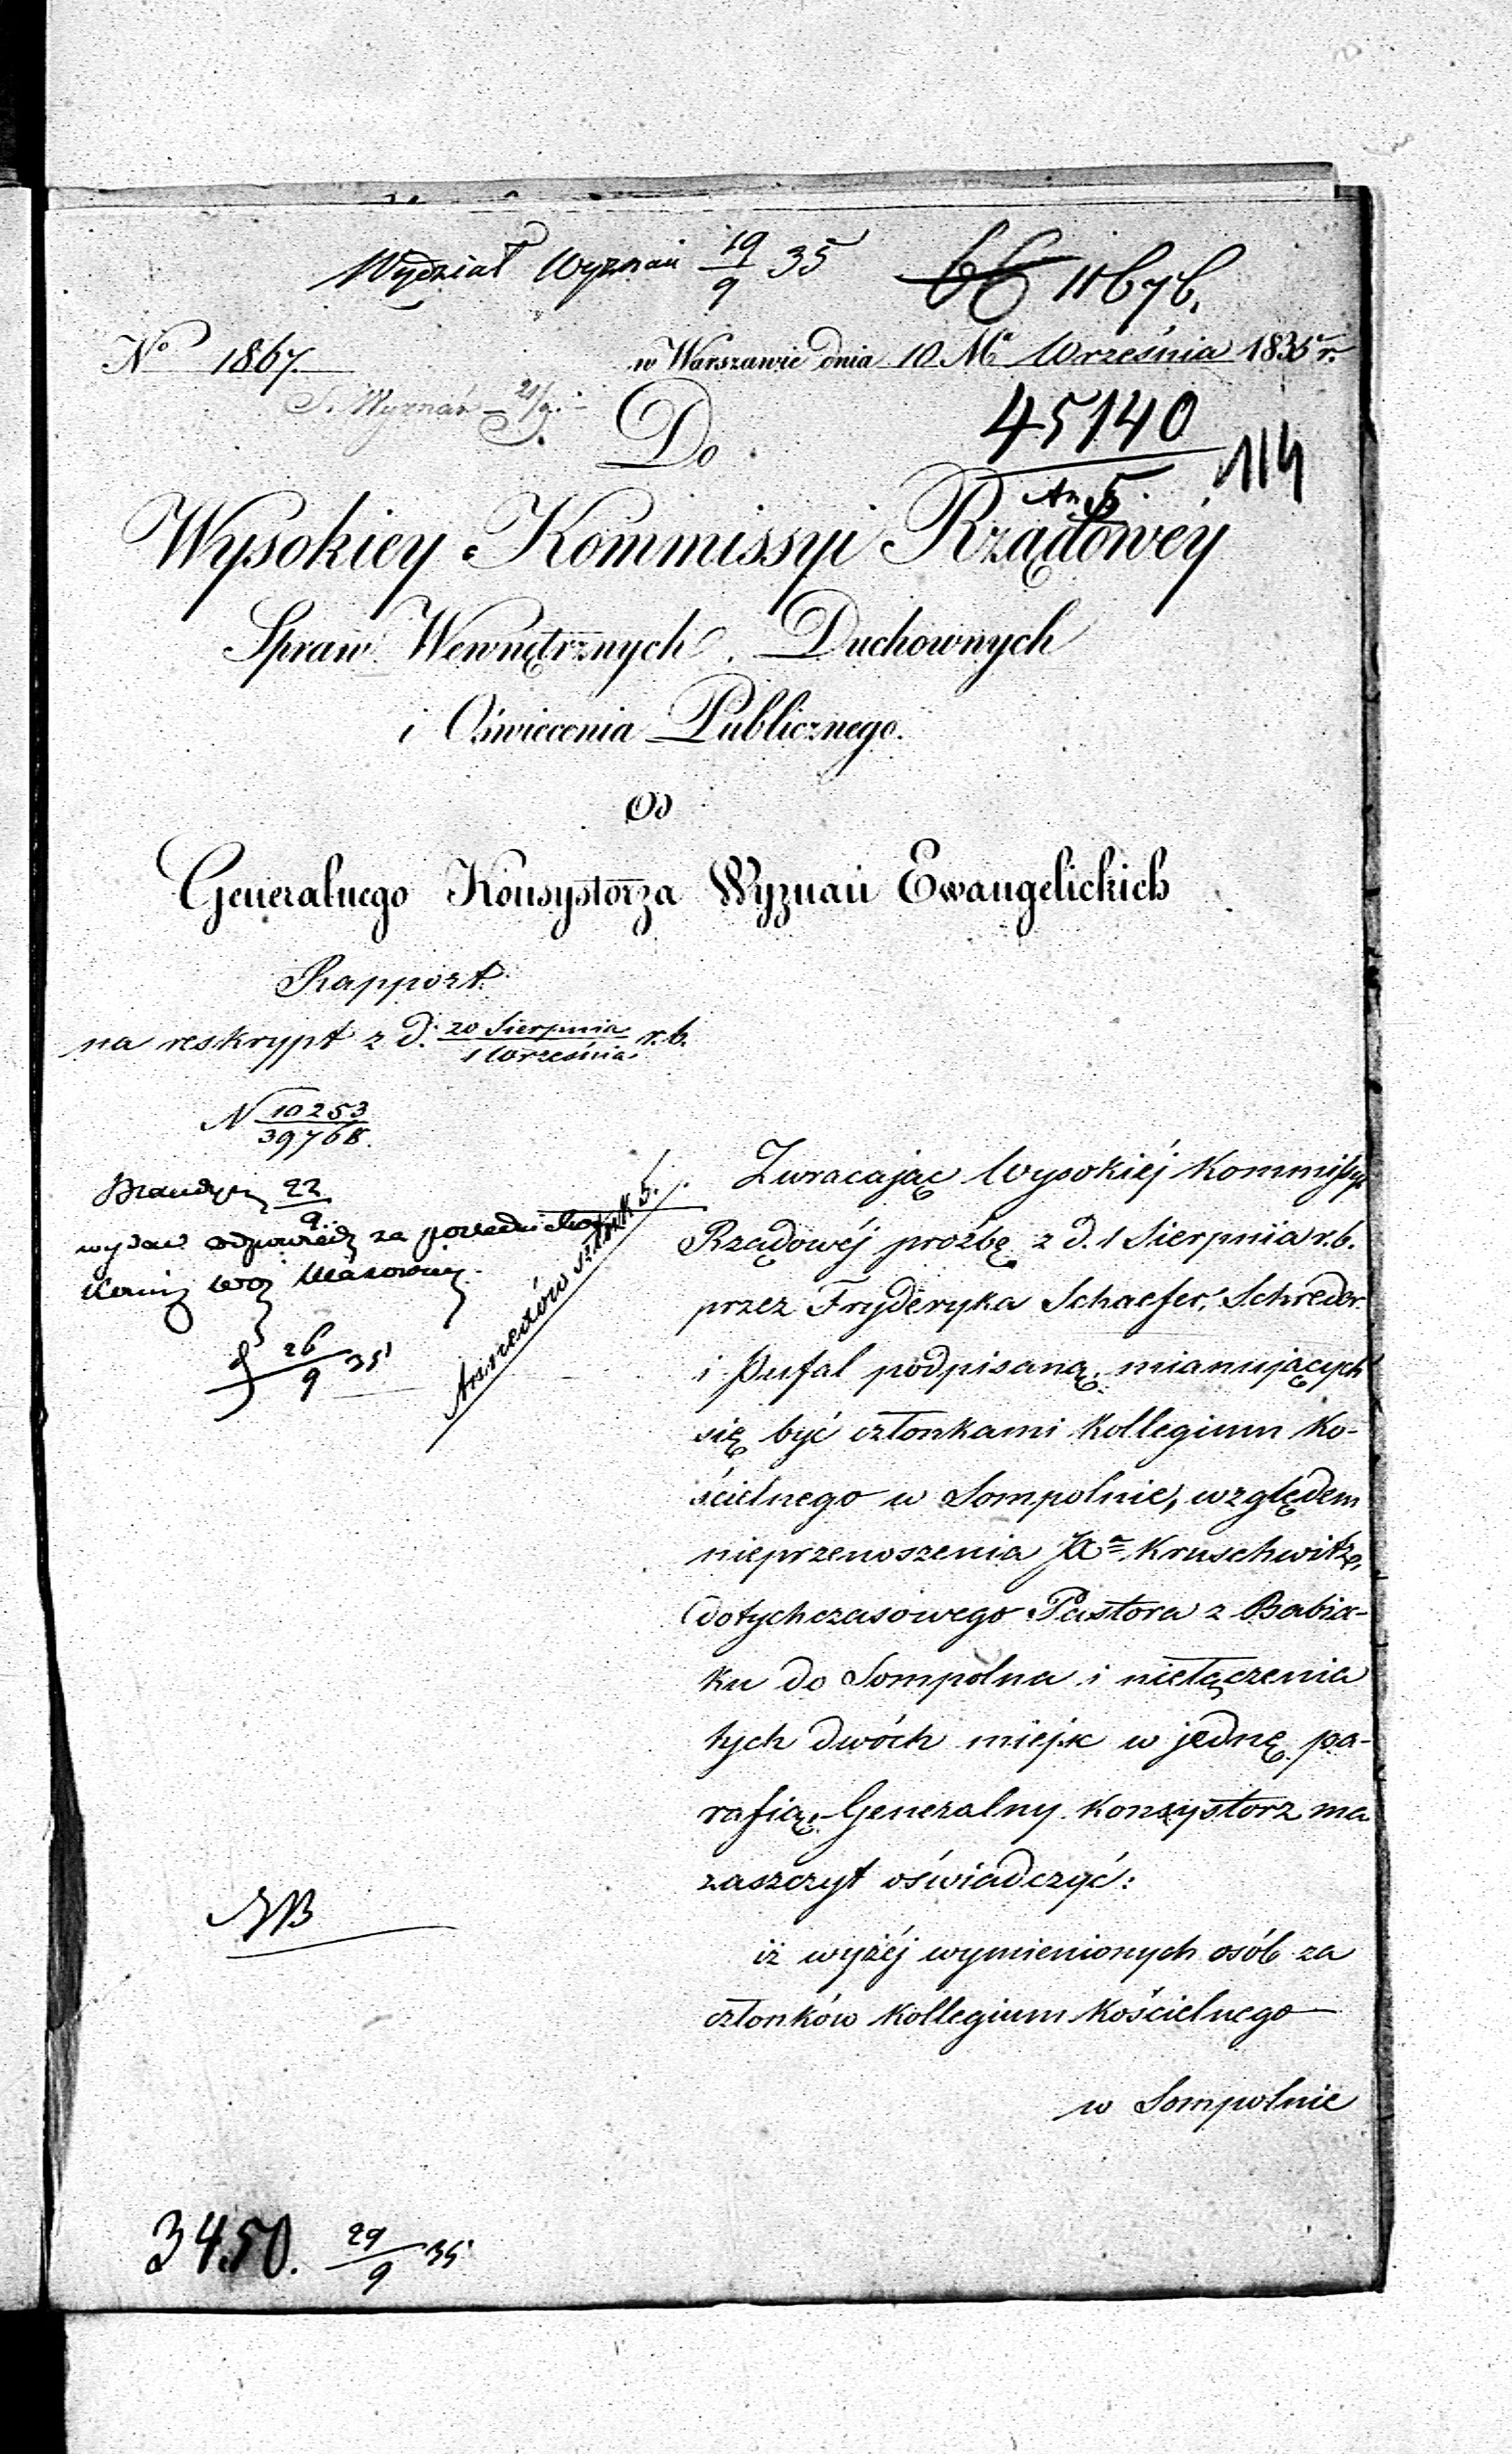 Wydział Wyznań 19/9 35
66 11676.
No 1867.
w Warszawie dnia 10 Mca Września 1835 r.
S. Wyznań 21/9.
Do
45140
An. 5.
114
Wysokiey Kommissyi Rządowéy
Spraw Wewnętrznych, Duchownych
i Oświecenia Publicznego.
Od
Generalnego Konsystorza Wyznań Ewangelickich
Rapport
na reskrypt z d. 20 Sierpnia / 1 Września r.b.
N 10253 / 39768.
22/9
wydać odpowiedź za pośrednictwem
Woj Mazowiec.
26/9 35
Annexów sztuk 5.
Zwracając Wysokiéj Kommissyi
Rządowéj prozbę z d. 1 Sierpnia r.b.
przez Fryderyka Schaefer, Schreder
i Pufal podpisaną, mianujących
się być członkami Kollegium Ko-
ścielnego w Sompolnie, względem
nieprzenoszenia Xa Kruschwitz,
dotychczasowego Pastora z Babia-
ku do Sompolna i niełączenia
tych dwóch miejsc w jednę pa-
rafią, Generalny Konsystorz ma
zaszczyt oświadczyć:
iż wyżéj wymienionych osób za
członków Kollegium Kościelnego
w Sompolnie
NB
3450. 29/9 35